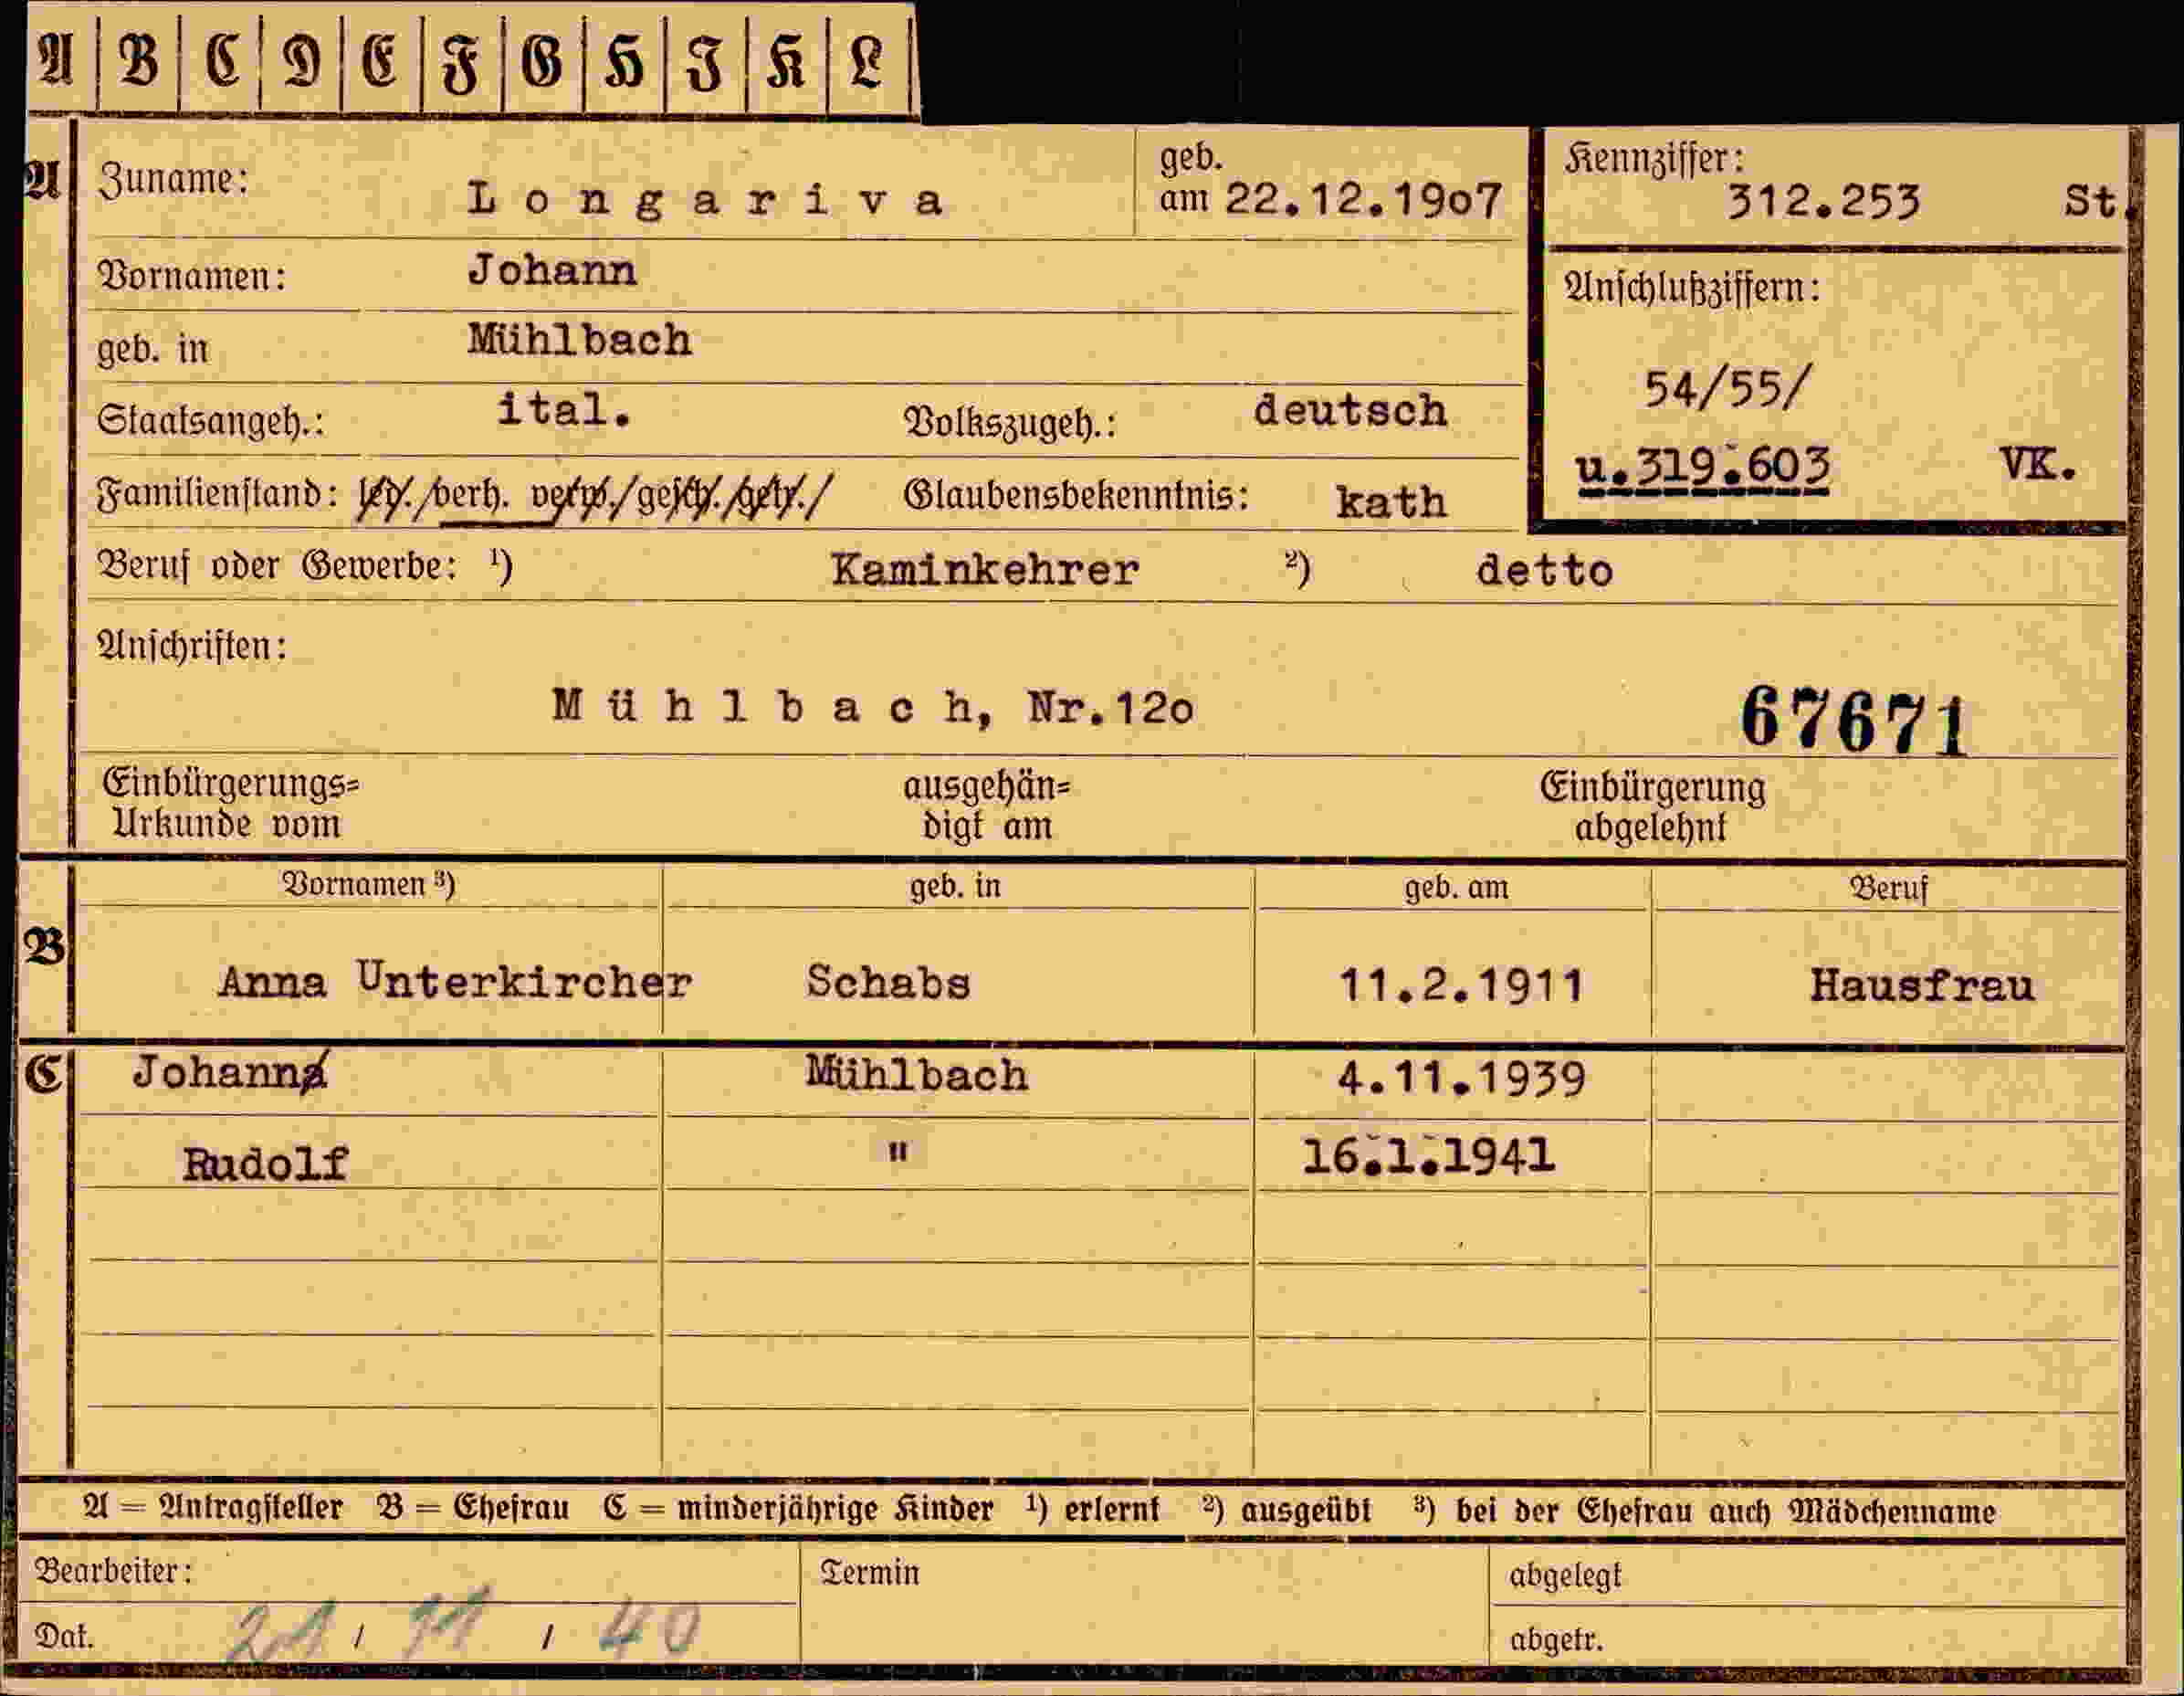 A B C D E F G H I K L
A Zuname: Longariva geb. am 22.12.19o7 Kennziffer: 312.253 St.
Vornamen: Johann Anschlußziffern:
geb. in Mühlbach
54/55/
Staatsangeh.: ital. Volkszugeh.: deutsch
u.319.603 VK.
Familienstand: led./verh. verw./gesch./getr./ Glaubensbekenntnis: kath
Beruf oder Gewerbe: ¹) Kaminkehrer ²) detto
Anschriften:
Mühlbach, Nr.12o 67671
Einbürgerungs= ausgehän= Einbürgerung
Urkunde vom digt am abgelehnt
Vornamen ³) geb. in geb. am Beruf
B Anna Unterkircher Schabs 11.2.1911 Hausfrau
C Johann Mühlbach 4.11.1939
Rudolf " 16.1.1941
A = Antragsteller B = Ehefrau C = minderjährige Kinder ¹) erlernt ²) ausgeübt ³) bei der Ehefrau auch Mädchenname
Bearbeiter: Termin abgelegt
Dat. 21 / 11 / 40 abgetr.